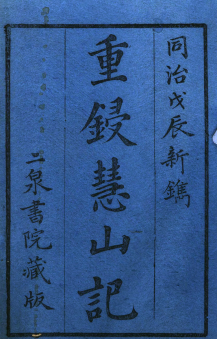 同治戊辰新鐫
重鋟慧山記
二泉書院藏版